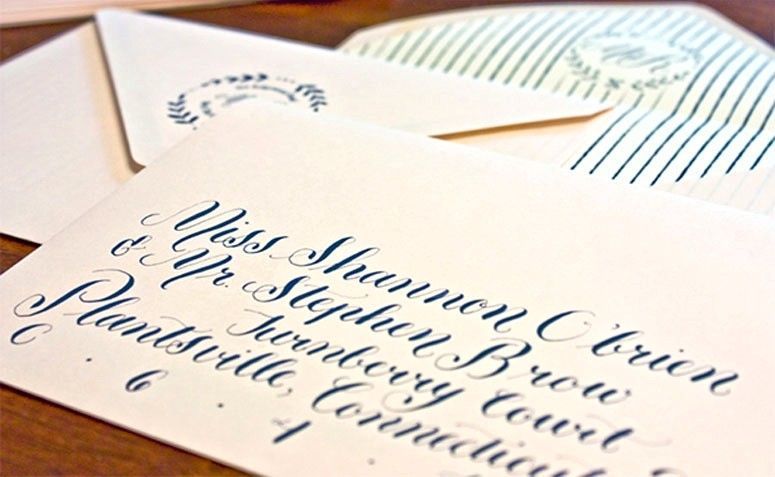 Miss Shannon O'brien
& Mr. Stephen Brow
Turnberry Court
Plantsville, Connecticut
0 . 6 . 4